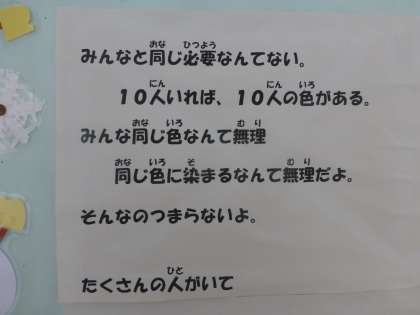 みんなと同じ必要なんてない。
１０人いれば、１０人の色がある。
みんな同じ色なんて無理
同じ色に染まるなんて無理だよ。
そんなのつまらないよ。
たくさんの人がいて